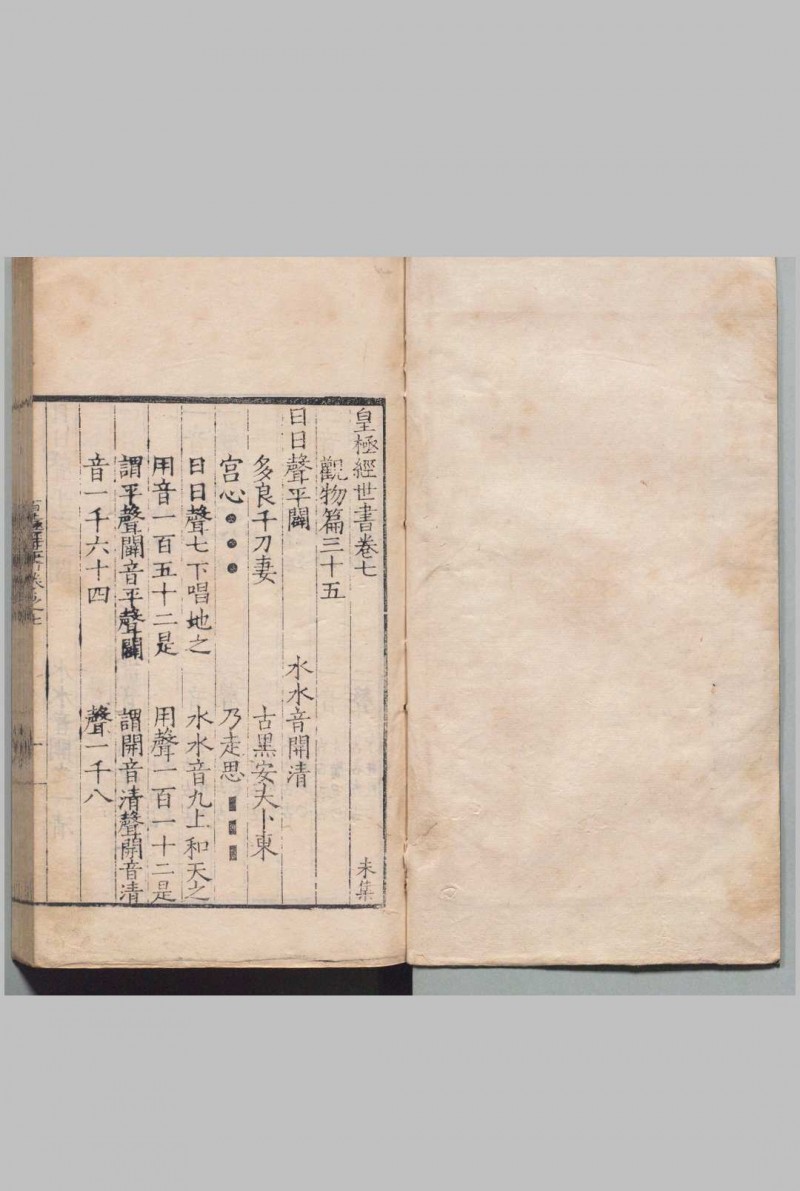 皇極經世書卷七 未集
觀物篇三十五
日日聲平闢 水水音開清
多良千刀妻 古黑安夫卜東
宮心●●● 乃走思■■■
日日聲七下唱地之 水水音九上和天之
用音一百五十二是 用聲一百一十二是
謂平聲闢音平聲闢 謂開音清聲開音清
音一千六十四 聲一千八